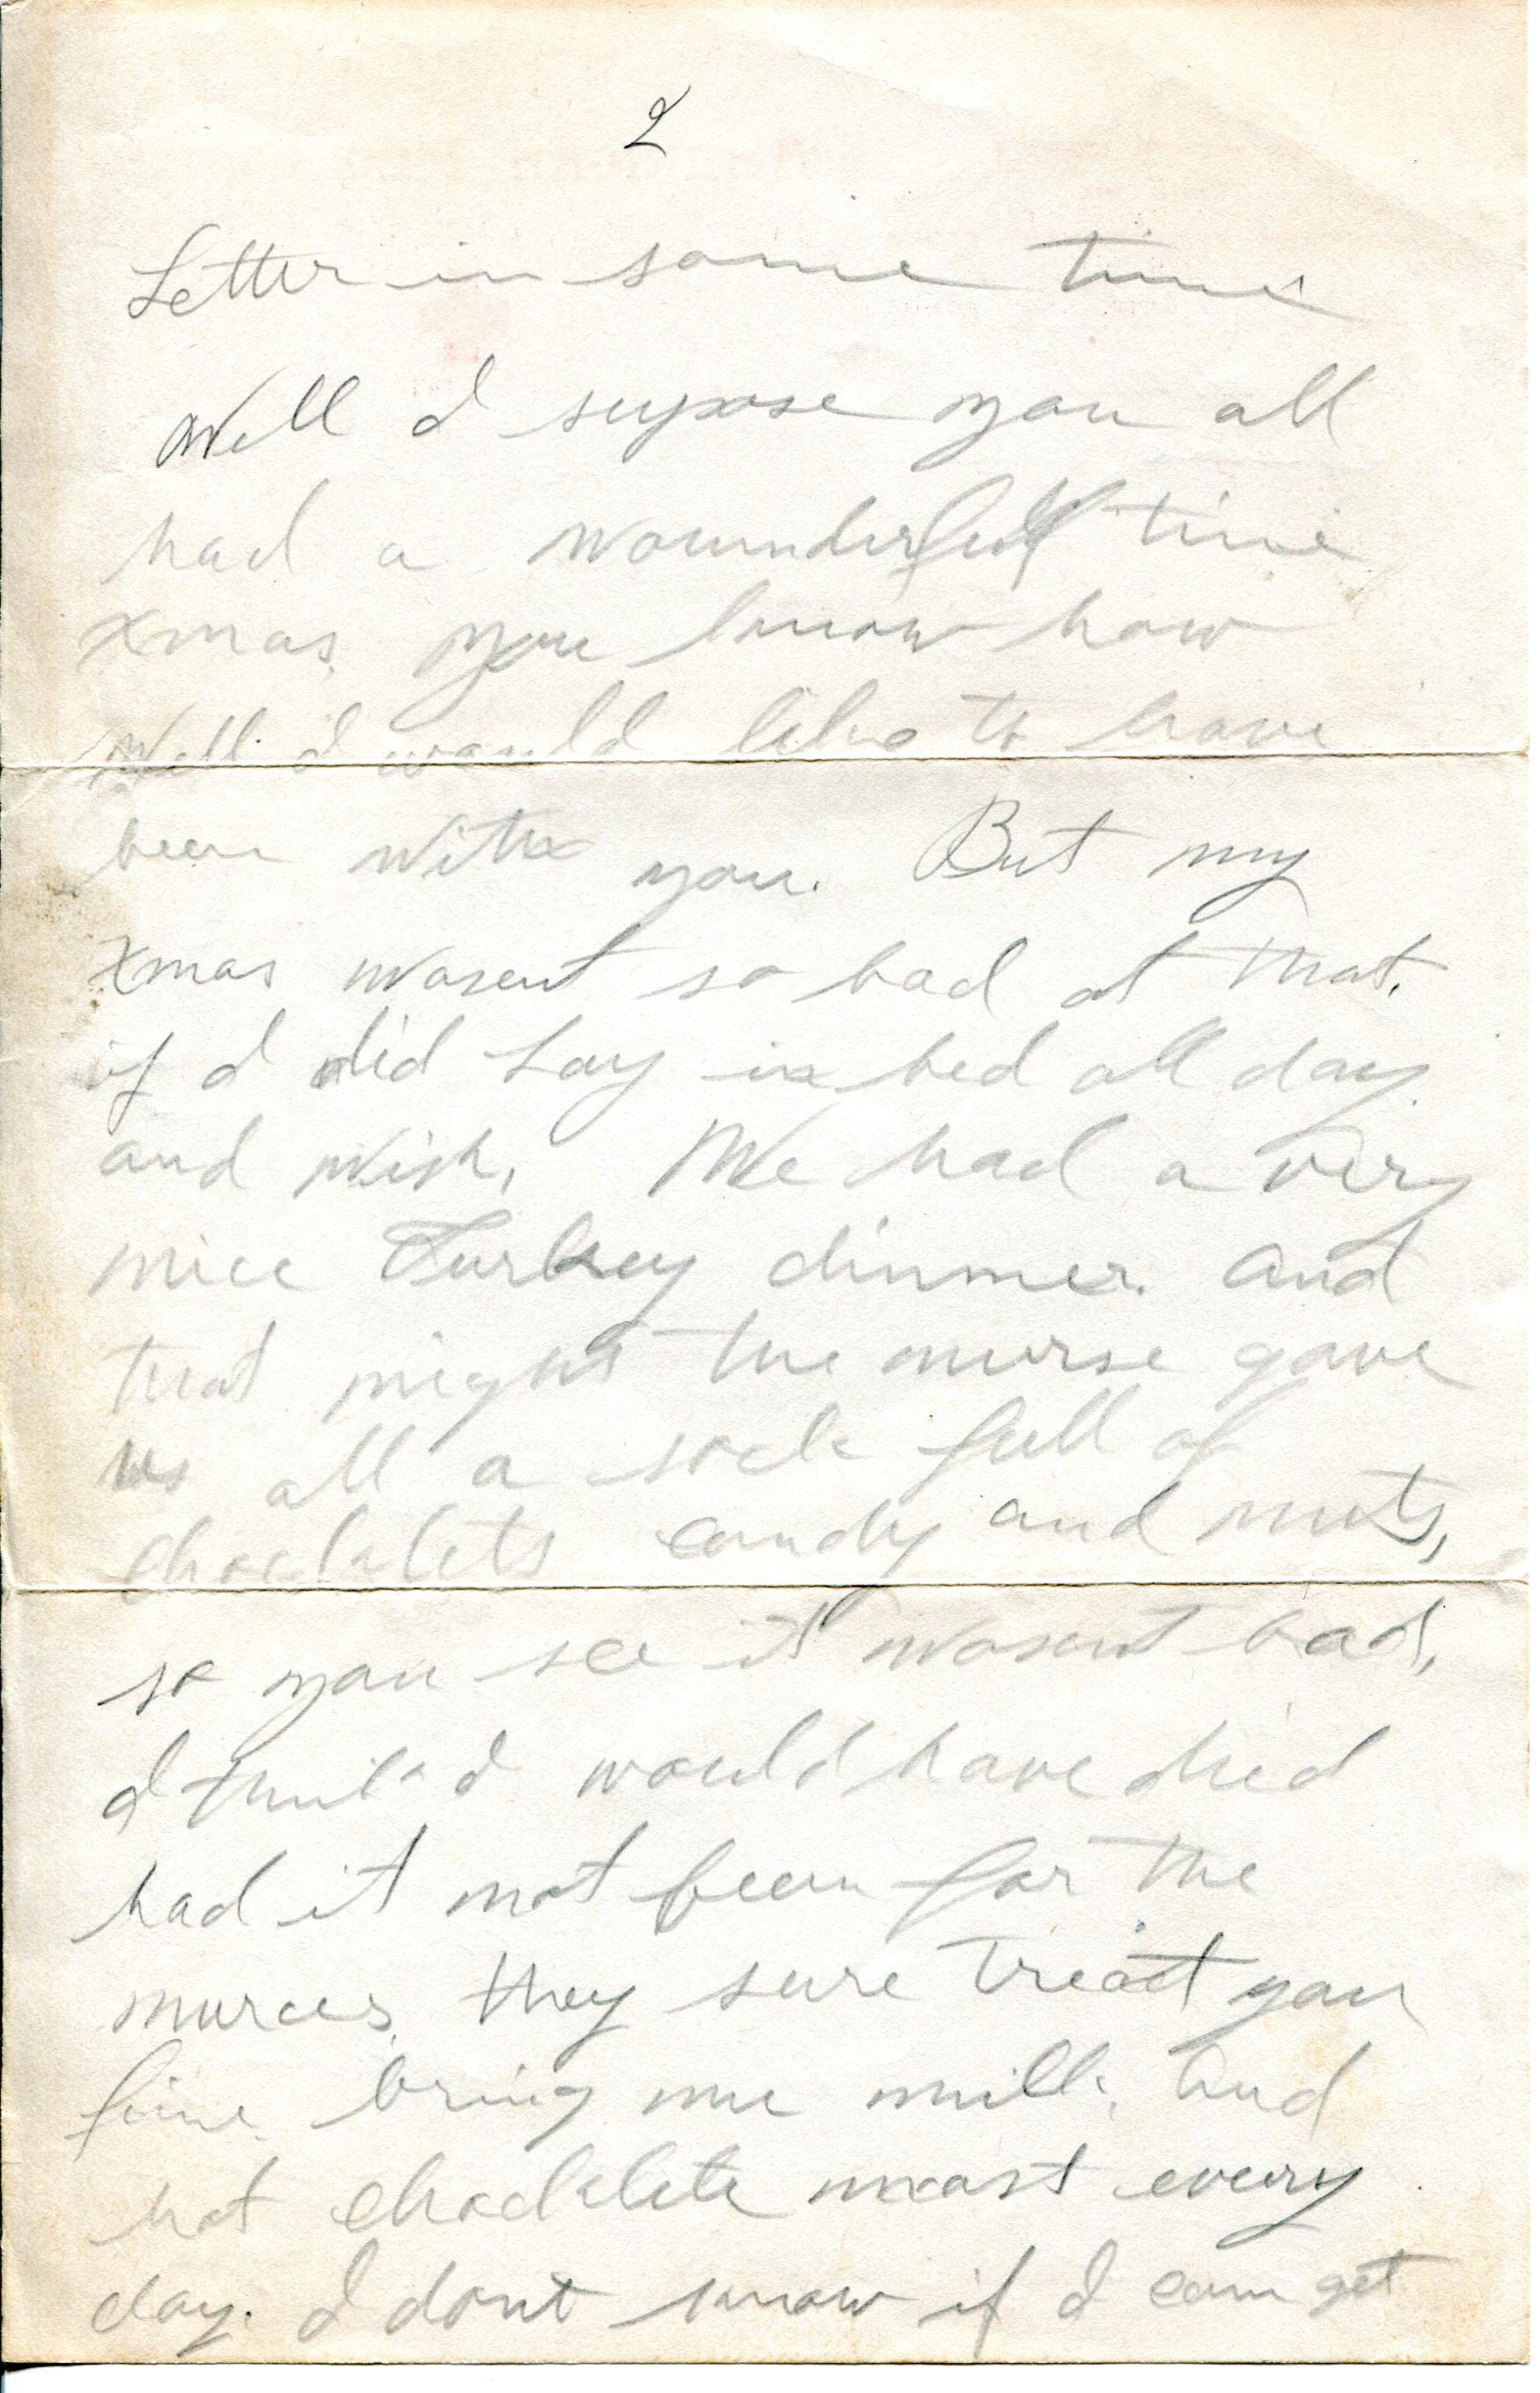 2
Letter in some time
Well I supose you all
had a wounderfull time
xmas. you know how
well I would like to have
been with you. But my
xmas wasent so bad at that.
if I did Lay in bed all day
and wish. We had a very
nice Turkey dinner. and
that night the nurse gave
us all a sock full of
chocklets candy and nuts,
so you see it wasent bad,
I think I would have died
had it not been for the
nurces. they sure treat you
fine. bring me milk. and
hot chocklete most every
day. I dont know if I can get